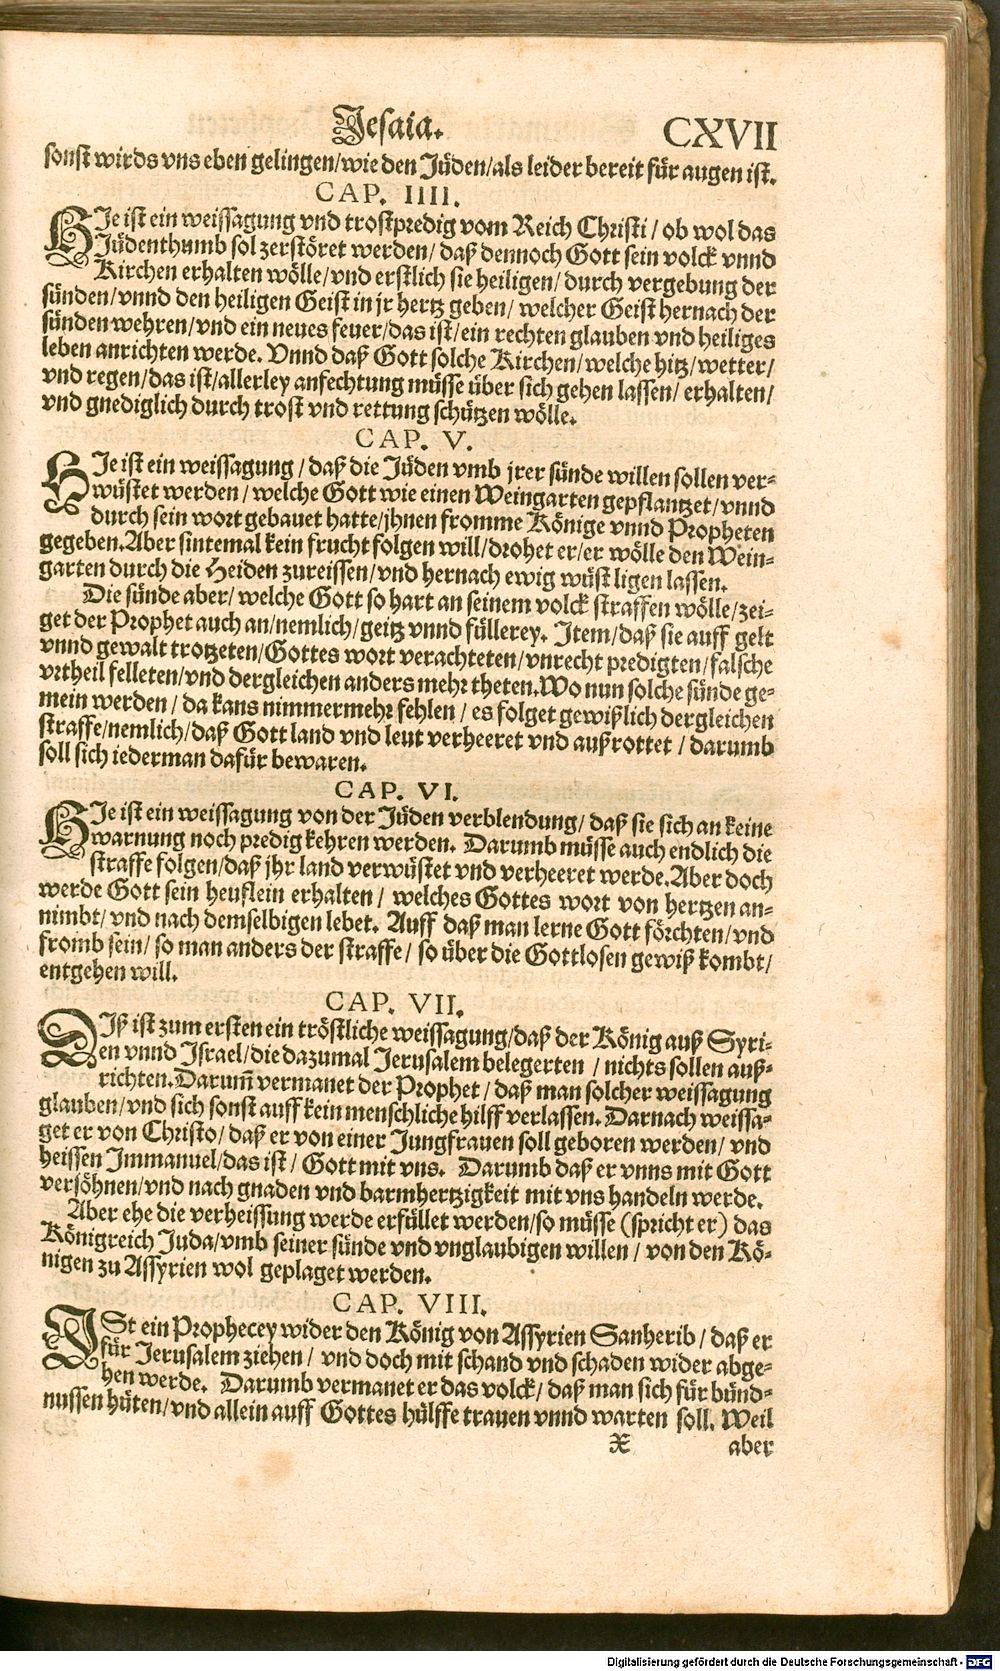 Jesaia.
CXVII
sonst wirds vns eben gelingen/wie den Jüden/als leider bereit für augen ist.
CAP. IIII.
HJe ist ein weissagung vnd trostpredig vom Reich Christi / ob wol das
Jüdenthumb sol zerstöret werden/ daß dennoch Gott sein volck vnnd
Kirchen erhalten wölle/vnd erstlich sie heiligen/ durch vergebung der
sünden/vnnd den heiligen Geist in jr hertz geben/ welcher Geist hernach der
sünden wehren/vnd ein neues feuer/das ist/ein rechten glauben vnd heiliges
leben anrichten werde. Vnnd daß Gott solche Kirchen/welche hitz/wetter/
vnd regen/das ist/allerley anfechtung müsse über sich gehen lassen/ erhalten/
vnd gnediglich durch trost vnd rettung schützen wölle.
CAP. V.
HJe ist ein weissagung / daß die Jüden vmb jrer sünde willen sollen ver-
wüstet werden / welche Gott wie einen Weingarten gepflantzet/vnnd
durch sein wort gebauet hatte/jhnen fromme Könige vnnd Propheten
gegeben. Aber sintemal kein frucht folgen will/drohet er/er wölle den Wein-
garten durch die Heiden zureissen/vnd hernach ewig wüst ligen lassen.
Die sünde aber/ welche Gott so hart an seinem volck straffen wölle/zei-
get der Prophet auch an/nemlich/geitz vnnd füllerey. Item/daß sie auff gelt
vnnd gewalt trotzeten/Gottes wort verachteten/vnrecht predigten/falsche
vrtheil felleten/vnd dergleichen anders mehr theten. Wo nun solche sünde ge-
mein werden / da kans nimmermehr fehlen / es folget gewißlich dergleichen
straffe/nemlich/daß Gott land vnd leut verheeret vnd außrottet / darumb
soll sich iederman dafür bewaren.
CAP. VI.
HJe ist ein weissagung von der Jüden verblendung/ daß sie sich an keine
warnung noch predig kehren werden. Darumb müsse auch endlich die
straffe folgen/daß jhr land verwüstet vnd verheeret werde. Aber doch
werde Gott sein heuflein erhalten / welches Gottes wort von hertzen an-
nimbt/vnd nach demselbigen lebet. Auff daß man lerne Gott förchten/vnd
fromb sein/ so man anders der straffe/ so über die Gottlosen gewiß kombt/
entgehen will.
CAP. VII.
DIß ist zum ersten ein tröstliche weissagung/daß der König auß Syri-
en vnnd Israel/die dazumal Jerusalem belegerten / nichts sollen auß-
richten. Darum̃ vermanet der Prophet / daß man solcher weissagung
glauben/vnd sich sonst auff kein menschliche hilff verlassen. Darnach weissa-
get er von Christo/daß er von einer Jungfrauen soll geboren werden/ vnd
heissen Immanuel/das ist/ Gott mit vns. Darumb daß er vnns mit Gott
versöhnen/vnd nach gnaden vnd barmhertzigkeit mit vns handeln werde.
Aber ehe die verheissung werde erfüllet werden/so müsse (spricht er) das
Königreich Juda/vmb seiner sünde vnd vnglaubigen willen / von den Kö-
nigen zu Assyrien wol geplaget werden.
CAP. VIII.
ISt ein Prophecey wider den König von Assyrien Sanherib / daß er
für Jerusalem ziehen / vnd doch mit schand vnd schaden wider abge-
hen werde. Darumb vermanet er das volck/ daß man sich für bünd-
nussen hüten/vnd allein auff Gottes hülffe trauen vnnd warten soll. Weil
X
aber
Digitalisierung gefördert durch die Deutsche Forschungsgemeinschaft - DFG